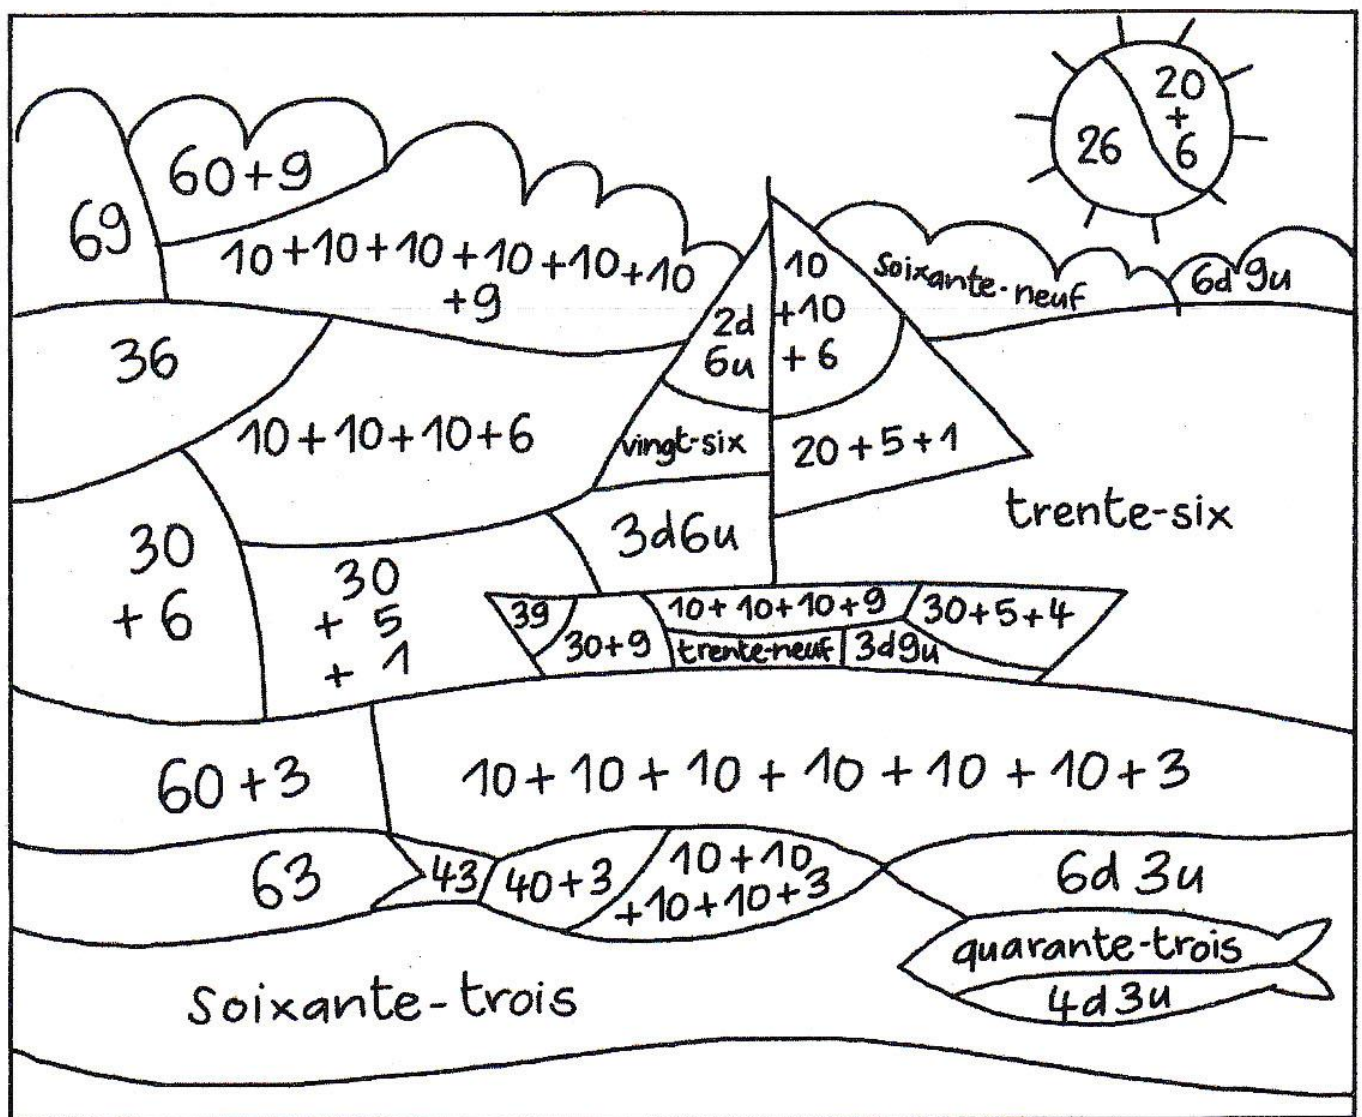 20
+
6
26
60+9
69
10+10+10+10+10+10
+9
soixante-neuf
6d 9u
2d
6u
10
+10
+ 6
36
10+10+10+6
vingt-six
20+5+1
trente-six
3d6u
30
+ 6
30
+ 5
+ 1
39
30+9
10+10+10+9
trente-neuf
3d9u
30+5+4
60+3
10+10+10+10+10+10+3
63
43
40+3
10+10
+10+10+3
6d 3u
quarante-trois
4d3u
soixante-trois